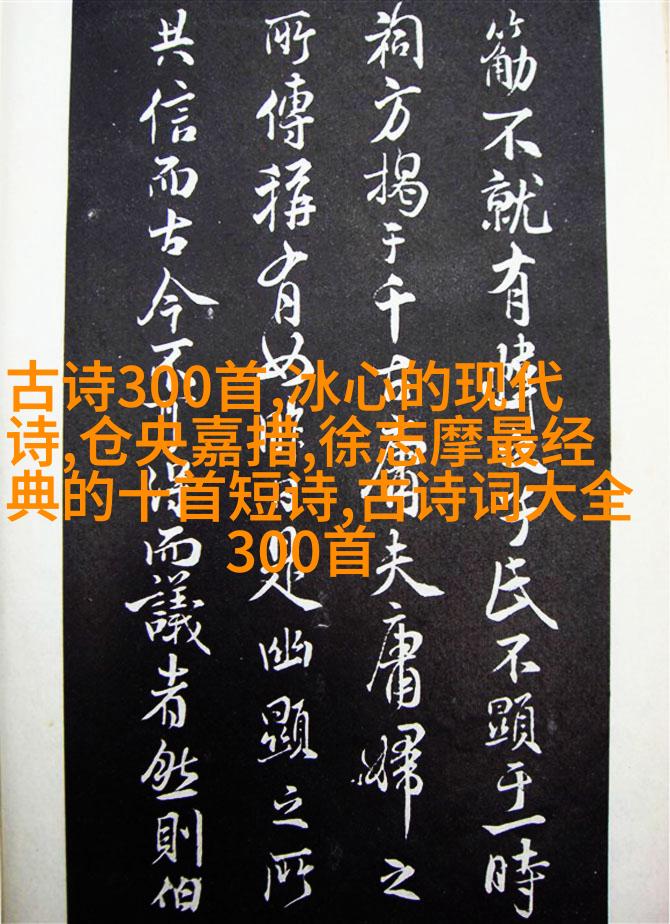 不就有于氏不顯于一時
祠方揭于千古庸夫庸婦之
所傳稱有如昨日是幽顯之所
共信而古今不可得而議者然則伯
古诗300首,冰心的现代
诗,仓央嘉措,徐志摩最经
典的十首短诗,古诗词大全
300首